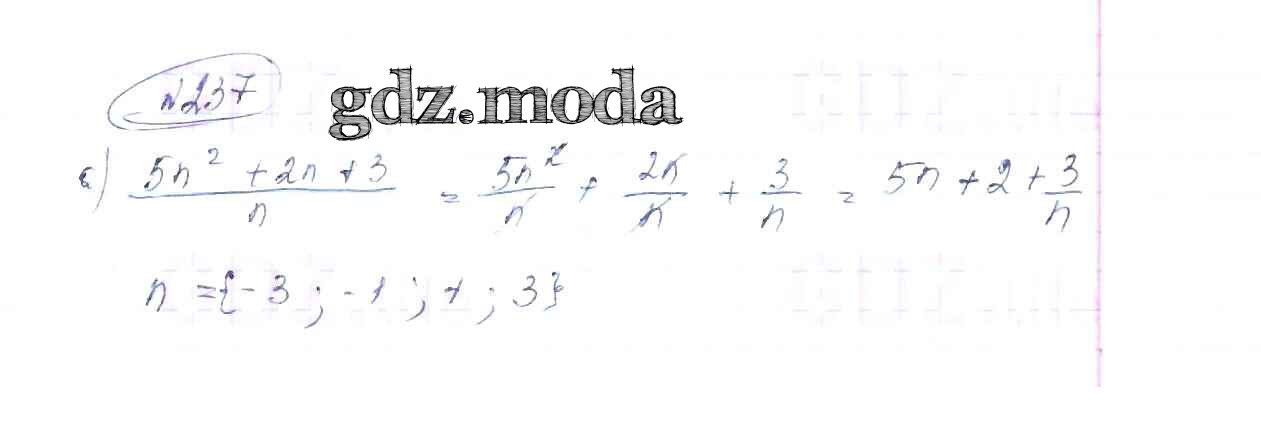 №237
gdz.moda
а) (5n² + 2n + 3)/n = 5n²/n + 2n/n + 3/n = 5n + 2 + 3/n
n = {-3; -1; 1; 3}